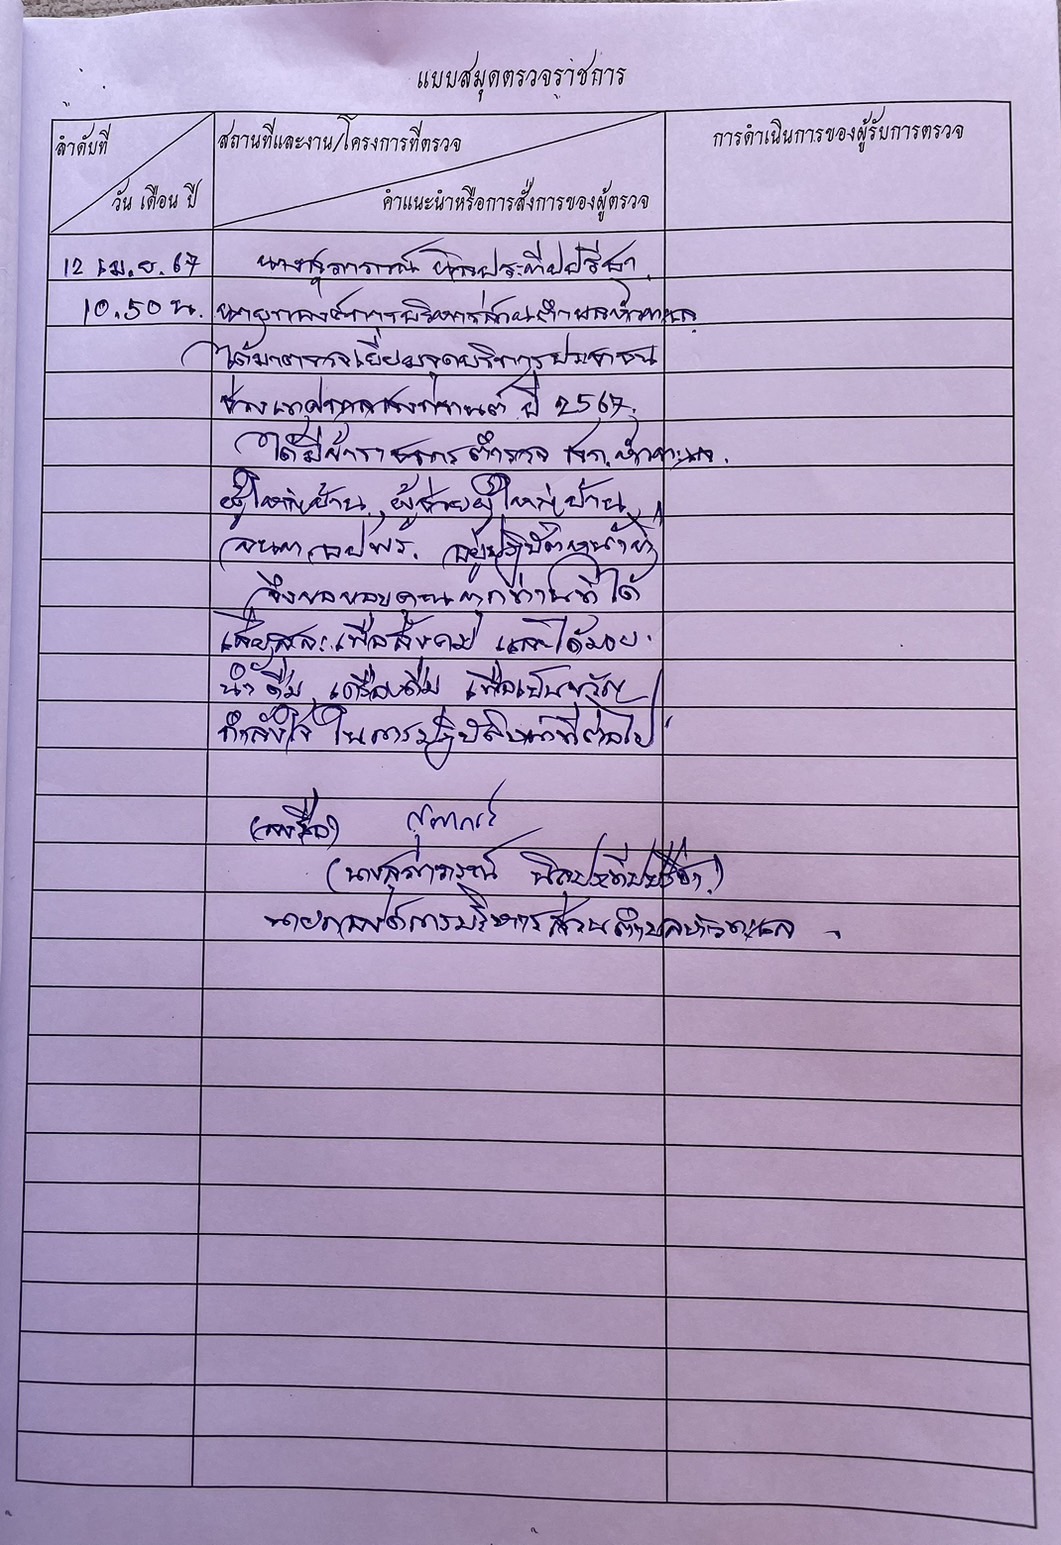 แบบสมุดตรวจราชการ
ลำดับที่
วัน เดือน ปี
สถานที่และงาน/โครงการที่ตรวจ
คำแนะนำหรือการสั่งการของผู้ตรวจ
การดำเนินการของผู้รับการตรวจ
12 เม.ย. 67
10.50 น.
นายกองค์การบริหารส่วนตำบลหัวทะเล
ได้มาตรวจเยี่ยมจุดบริการประชาชน
ช่วงเทศกาลสงกรานต์ ปี 2567
ได้มีข้าราชการตำรวจ สภ.หัวทะเล
ผู้ใหญ่บ้าน, ผู้ช่วยผู้ใหญ่บ้าน,
อปพร. อยู่ปฏิบัติหน้าที่
จึงขอขอบคุณทุกท่านที่ได้
เสียสละเพื่อสังคม และได้มอบ
น้ำดื่ม, เครื่องดื่ม เพื่อเป็นขวัญ
กำลังใจ ในการปฏิบัติหน้าที่ต่อไป
(ลงชื่อ) สุภาภรณ์
(นางสุภาภรณ์
นายกองค์การบริหารส่วนตำบลหัวทะเล